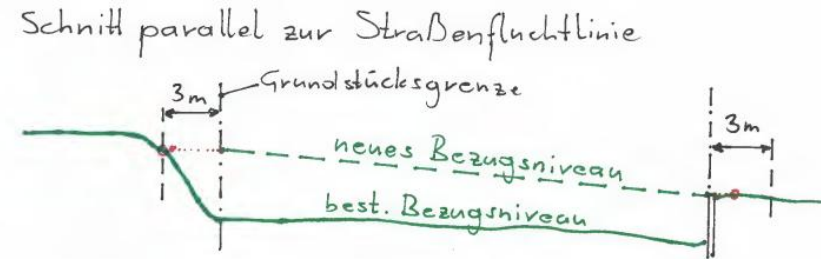 Schnitt parallel zur Straßenfluchtlinie
3m
Grundstücksgrenze
3m
neues Bezugsniveau
best. Bezugsniveau